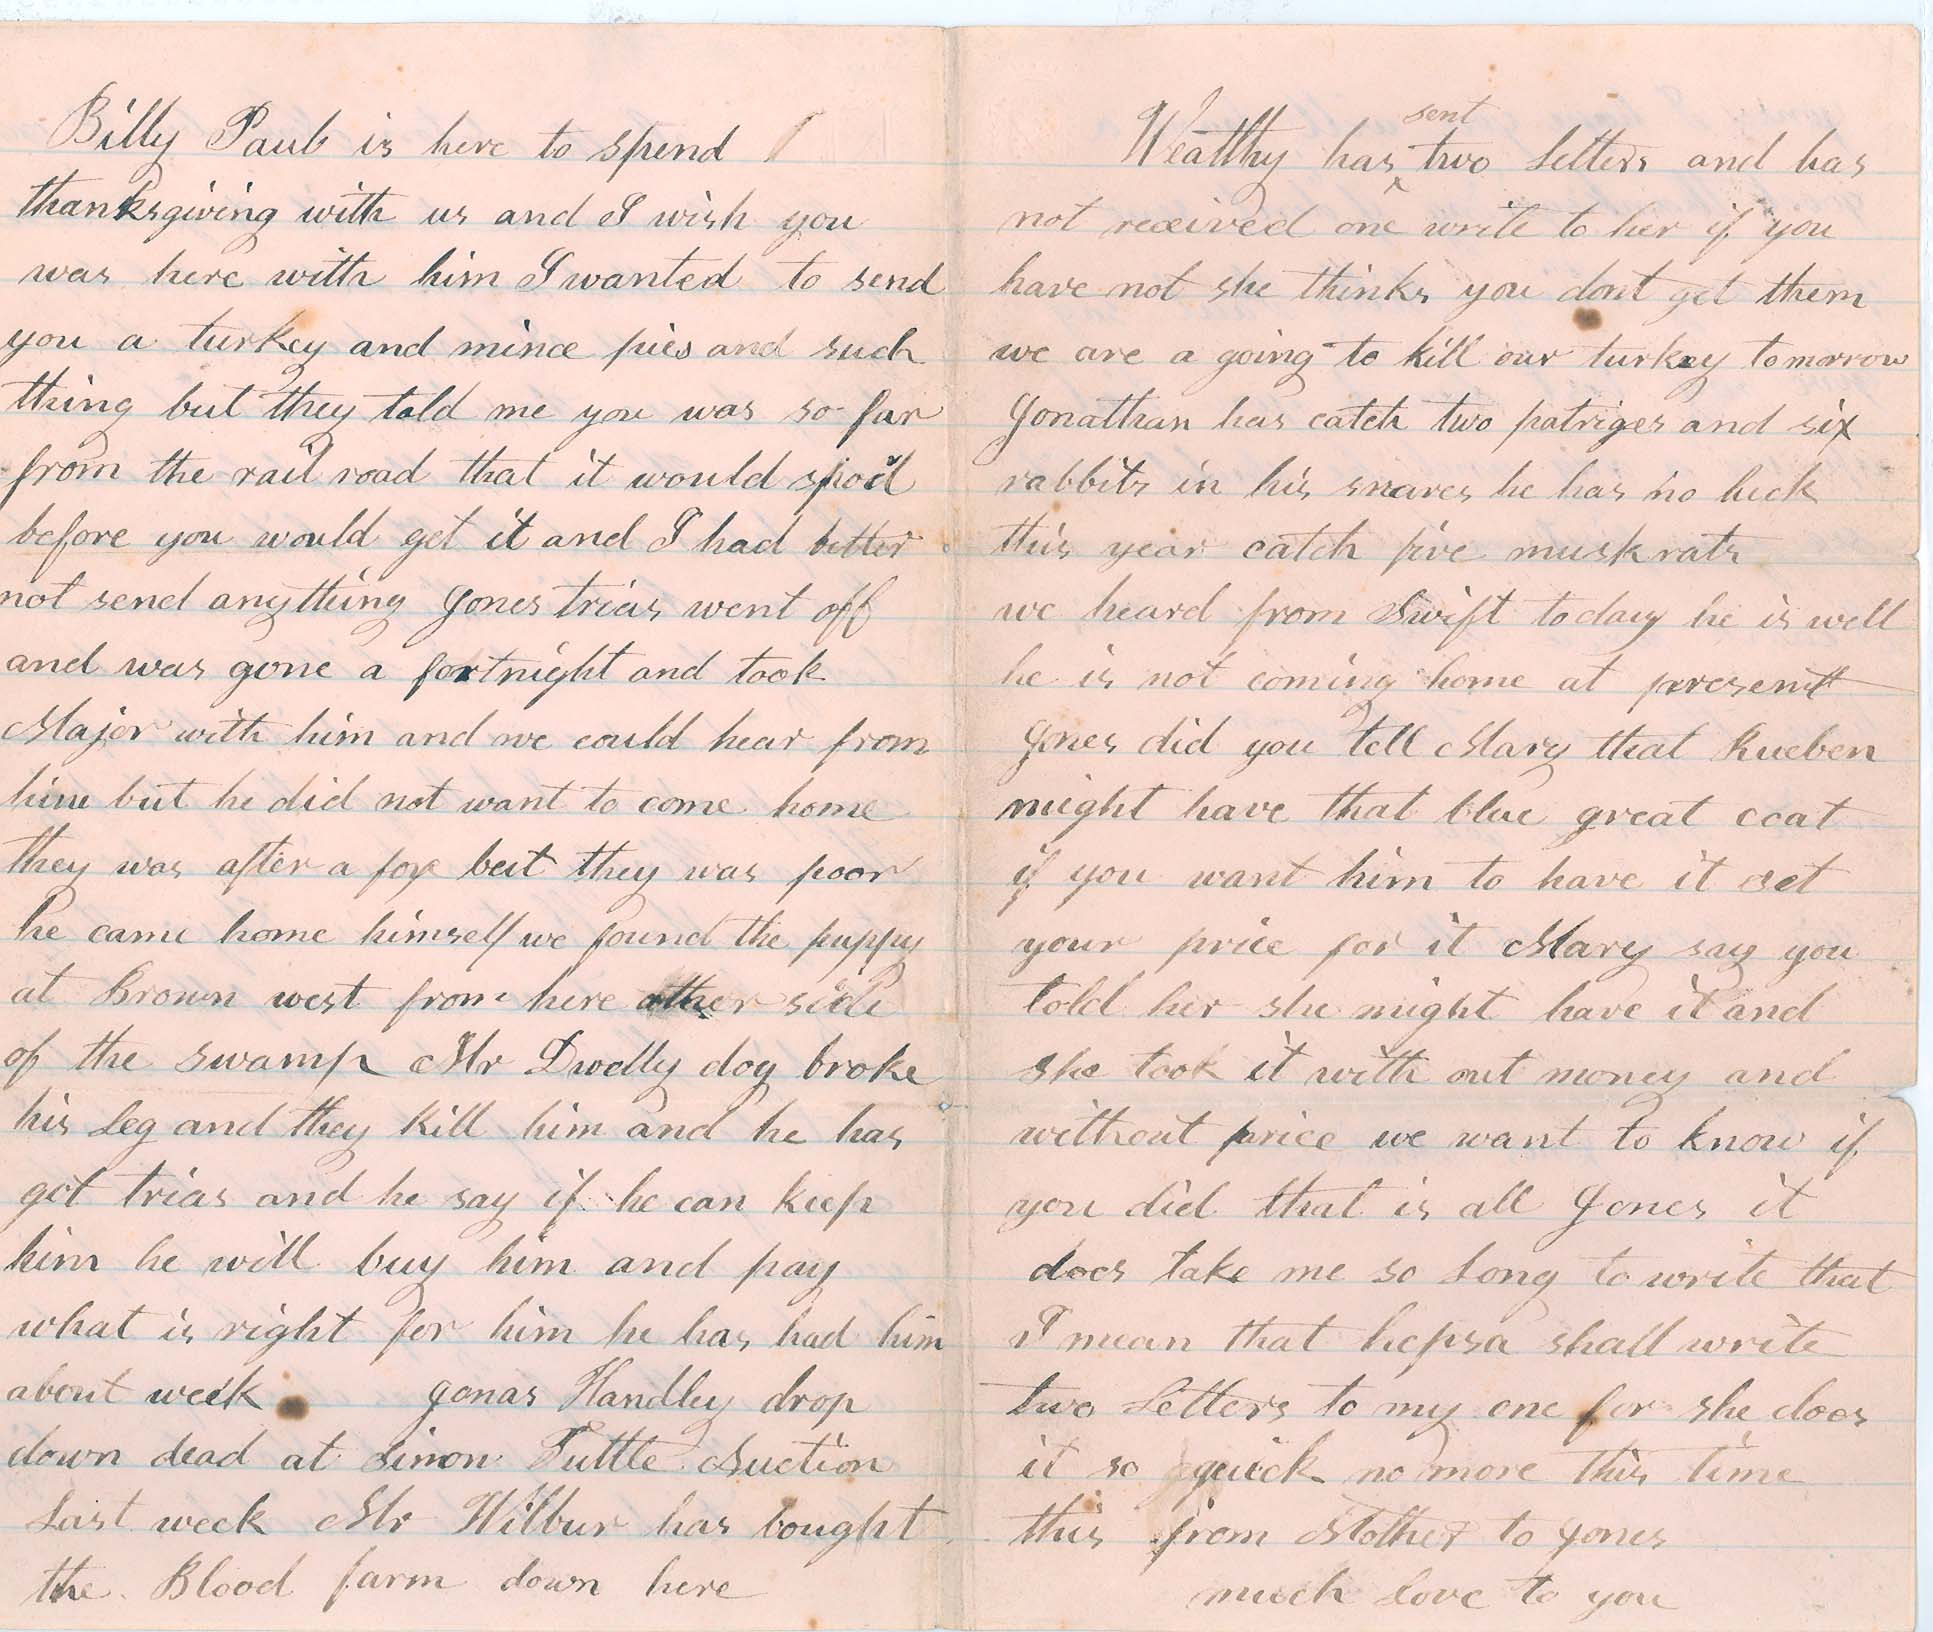 Billy Paul is here to spend
thanksgiving with us and I wish you
was here with him I wanted to send
you a turkey and mince pies and such
thing but they told me you was so far
from the rail road that it would spoil
before you would get it and I had better
not send anything Jones trias went off
and was gone a fortnight and took
Major with him and we could hear from
him but he did not want to come home
they was after a fox but they was poor
he came home himself we found the puppy
at Brown west from here other side
of the swamp Mr Dwelly dog broke
his Leg and they kill him and he has
got trias and he say if he can keep
him he will buy him and pay
what is right for him he has had him
about week Jonas Handley drop
down dead at Simon Tuttle Auction
Last week Mr Wilbur has bought
the Blood farm down here
Wealthy has sent two Letters and has
not received one write to her if you
have not she thinks you dont get them
we are a going to kill our turkey tomorrow
Jonathan has catch two patriges and six
rabbits in his snares he has no luck
this year catch five muskrats
we heard from Swift today he is well
he is not coming home at present
Jones did you tell Mary that Rueben
might have that blue great coat
if you want him to have it set
your price for it Mary say you
told her she might have it and
she took it with out money and
without price we want to know if
you did that is all Jones it
does take me so Long to write that
I mean that hepsa shall write
two Letters to my one for she does
it so quick no more this time
this from Mother to Jones
much Love to you